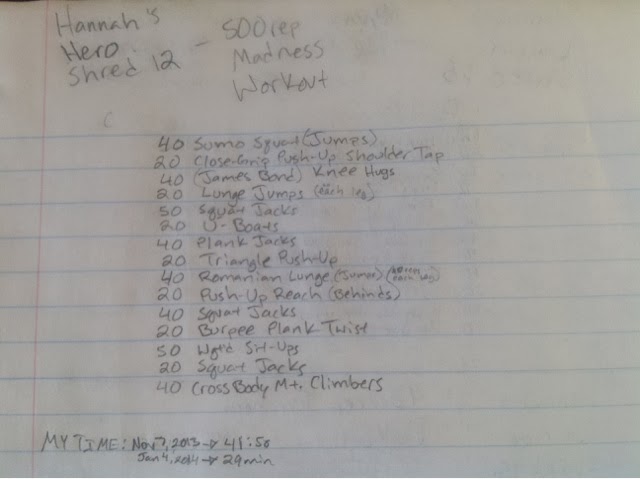 Hannah's
Hero
Shred 12 -
500 rep
Madness
Workout
40 Sumo Squat (Jumps)
20 Close-Grip Push-Up Shoulder Tap
40 (James Bond) Knee Hugs
20 Lunge Jumps (each leg)
50 Squat Jacks
20 U-Boats
40 Plank Jacks
20 Triangle Push-Up
40 Romanian Lunge (Jumps) (each leg)
20 Push-Up Reach (Behinds)
40 Squat Jacks
20 Burpee Plank Twist
50 Wgt'd Sit-Ups
20 Squat Jacks
40 Cross Body Mt. Climbers
MY TIME: Nov 7, 2013 → 41:50
Jan 4, 2014 → 29 min